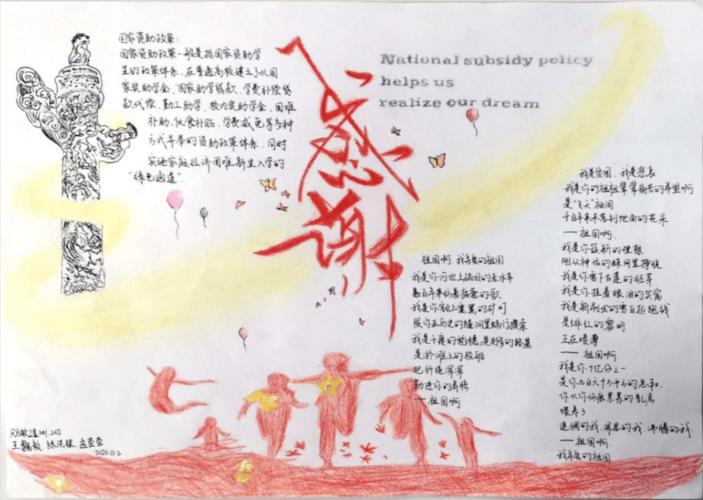 国家资助政策:
国家资助政策一般是指国家资助学
生的政策体系,在普通高校建立了以国
家奖助学金、国家助学贷款、学费补偿贷
款代偿、勤工助学、校内奖助学金、困难
补助、伙食补贴、学费减免等多种
方式并举的资助政策体系,同时
实施家庭经济困难新生入学的
“绿色通道”
感谢
National subsidy policy
helps us
realize our dream
祖国啊 我亲爱的祖国
我是你河边上破旧的老水车
数百年来纺着疲惫的歌
我是你额上熏黑的矿灯
照你在历史的隧洞里蜗行摸索
我是干瘪的稻穗,是失修的路基
是淤滩上的驳船
把纤绳深深
勒进你的肩膊
——祖国啊
我是贫困,我是悲哀
我是你的祖祖辈辈痛苦的希望啊
是“飞天”袖间
千百年来未落到地面的花朵
——祖国啊
我是你簇新的理想
刚从神话的蛛网里挣脱
我是你雪下古莲的胚芽
我是你挂着眼泪的笑窝
我是新刷出的雪白起跑线
是绯红的黎明
正在喷薄
——祖国啊
我是你十亿分之一
是你九百六十万平方的总和
你以伤痕累累的乳房
喂养了
迷惘的我、深思的我、沸腾的我
——祖国啊
我亲爱的祖国
2020.11.2